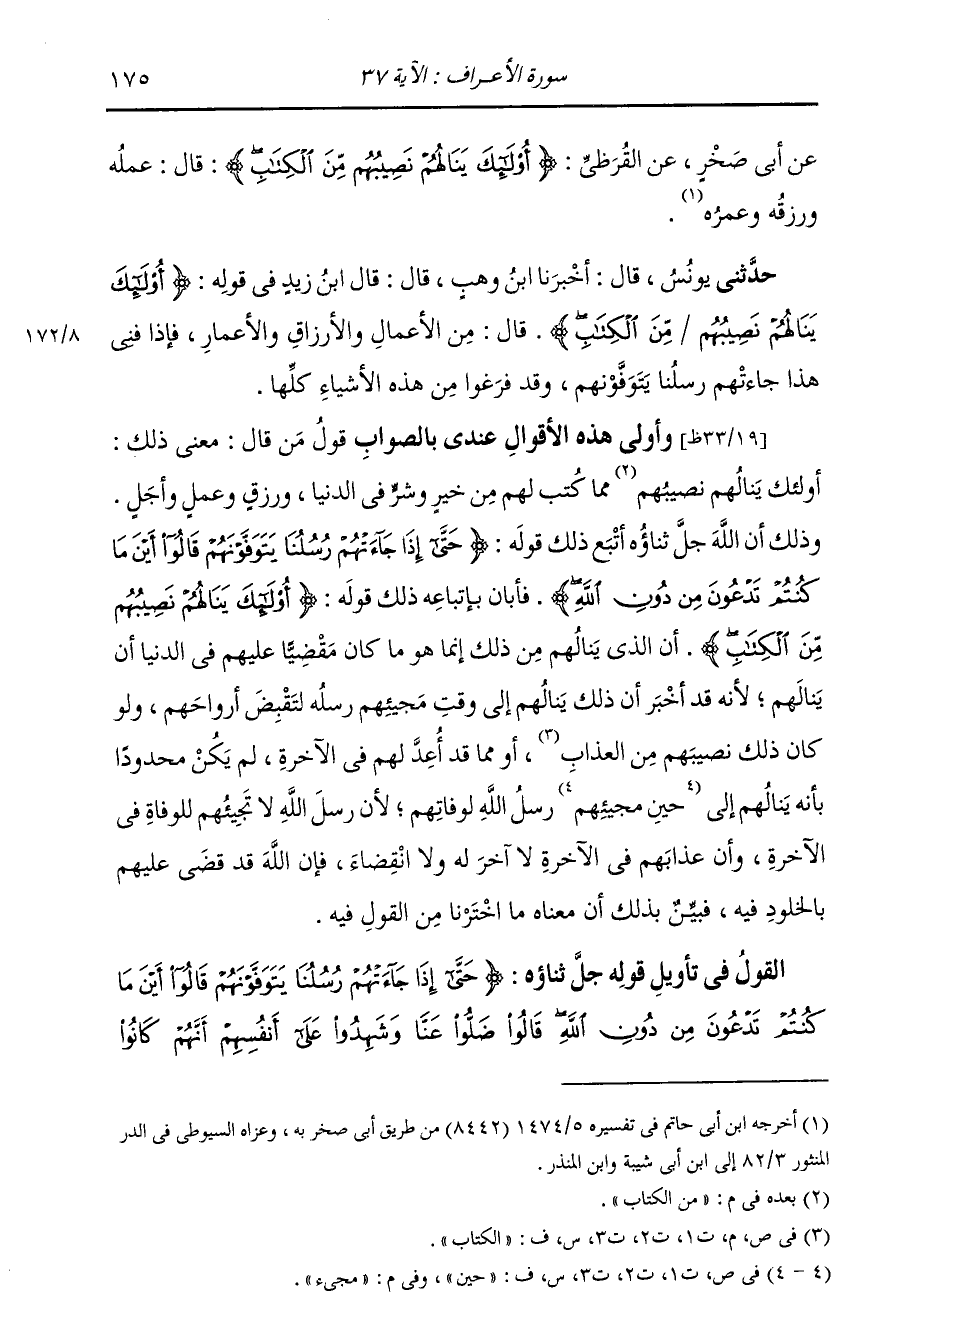 سورة الأعراف : الآية ٣٧
١٧٥
عن أبى صَخْرٍ ، عن القُرَظىِّ : ﴿ أُوْلَـٰٓئِكَ يَنَالُهُمْ نَصِيبُهُم مِّنَ ٱلْكِتَـٰبِۖ ﴾ : قال : عملُه
ورزقُه وعمرُه(١) .
حدَّثنى يونُسُ ، قال : أخْبرَنا ابنُ وهبٍ ، قال : قال ابنُ زيدٍ فى قولِه : ﴿ أُوْلَـٰٓئِكَ
يَنَالُهُمْ نَصِيبُهُم / مِّنَ ٱلْكِتَـٰبِۖ ﴾ . قال : مِن الأعمالِ والأرزاقِ والأعمارِ ، فإذا فنِى
١٧٢/٨
هذا جاءتْهم رسلُنا يَتَوَفَّوْنهم ، وقد فرَغوا مِن هذه الأشياءِ كلِّها .
[٣٣/١٩ظ] وأولى هذه الأقوالِ عندى بالصوابِ قولُ مَن قال : معنى ذلك :
أولئك يَنالُهم نصيبُهم(٢) مما كُتب لهم مِن خيرٍ وشرٍّ فى الدنيا ، ورزقٍ وعملٍ وأجَلٍ .
وذلك أن اللَّهَ جلَّ ثناؤُه أتْبَع ذلك قولَه : ﴿ حَتَّىٰٓ إِذَا جَآءَتْهُمْ رُسُلُنَا يَتَوَفَّوْنَهُمْ قَالُوٓا۟ أَيْنَ مَا
كُنتُمْ تَدْعُونَ مِن دُونِ ٱللَّهِۖ ﴾ . فأبان بإتباعِه ذلك قولَه : ﴿ أُوْلَـٰٓئِكَ يَنَالُهُمْ نَصِيبُهُم
مِّنَ ٱلْكِتَـٰبِۖ ﴾ . أن الذى يَنالُهم مِن ذلك إنما هو ما كان مَقْضِيًّا عليهم فى الدنيا أن
يَنالَهم ؛ لأنه قد أخْبَر أن ذلك يَنالُهم إلى وقتِ مَجيئِهم رسلُه لتَقْبِضَ أرواحَهم ، ولو
كان ذلك نصيبَهم مِن العذابِ(٣) ، أو مما قد أُعِدَّ لهم فى الآخرةِ ، لم يَكُنْ محدودًا
بأنه يَنالُهم إلى (٤حينِ مجيئِهم٤) رسلُ اللَّهِ لوفاتِهم ؛ لأن رسلَ اللَّهِ لا تَجِيئُهم للوفاةِ فى
الآخرةِ ، وأن عذابَهم فى الآخرةِ لا آخرَ له ولا انْقِضاءَ ، فإن اللَّهَ قد قضَى عليهم
بالخلودِ فيه ، فبيِّنٌ بذلك أن معناه ما اخْتَرْنا مِن القولِ فيه .
القولُ فى تأويلِ قولِه جلَّ ثناؤه : ﴿ حَتَّىٰٓ إِذَا جَآءَتْهُمْ رُسُلُنَا يَتَوَفَّوْنَهُمْ قَالُوٓا۟ أَيْنَ مَا
كُنتُمْ تَدْعُونَ مِن دُونِ ٱللَّهِۖ قَالُوا۟ ضَلُّوا۟ عَنَّا وَشَهِدُوا۟ عَلَىٰٓ أَنفُسِهِمْ أَنَّهُمْ كَانُوا۟
(١) أخرجه ابن أبى حاتم فى تفسيره ١٤٧٤/٥ (٨٤٤٢) من طريق أبى صخر به ، وعزاه السيوطى فى الدر
المنثور ٨٢/٣ إلى ابن أبى شيبة وابن المنذر .
(٢) بعده فى م : « من الكتاب » .
(٣) فى ص، م، ت١، ت٢، ت٣، س، ف : « الكتاب » .
(٤ - ٤) فى ص، ت١، ت٢، ت٣، س، ف : « حين » ، وفى م : « مجىء » .